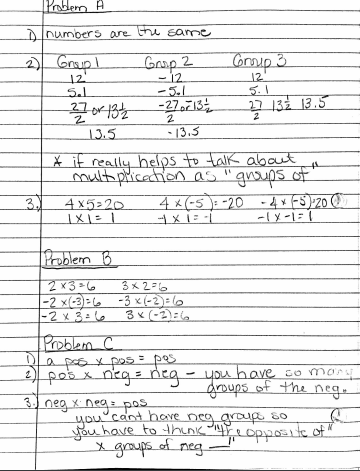 Problem A
1) numbers are the same
2) Group 1 Group 2 Group 3
12 -12 12
5.1 -5.1 5.1
27/2 or 13½ -27/2 or 13½ 27/2 13½ 13.5
13.5 -13.5
* it really helps to talk about
multiplication as "groups of"
3.) 4 x 5 = 20 4 x (-5) = -20 -4 x (-5) = 20
1 x 1 = 1 -1 x 1 = -1 -1 x -1 = 1
Problem B
2 x 3 = 6 3 x 2 = 6
-2 x (-3) = 6 -3 x (-2) = 6
-2 x 3 = 6 3 x (-2) = 6
Problem C
1) a pos x pos = pos
2) pos x neg = neg - you have so many
groups of the neg.
3.) neg x neg = pos
you cant have neg groups so
you have to think "the opposite of"
x groups of neg __"